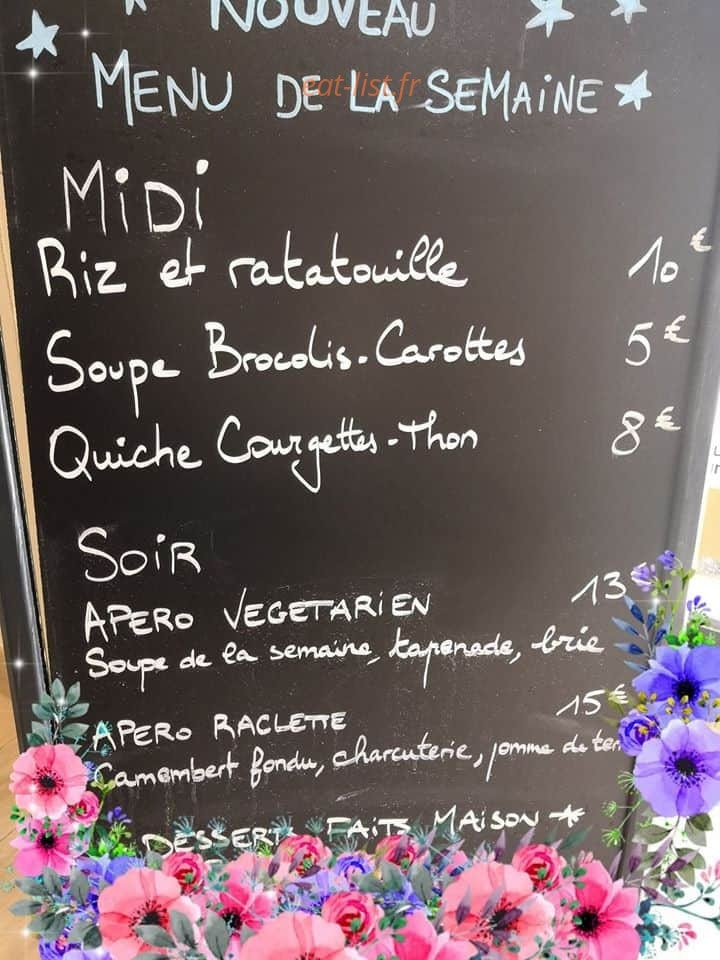 NOUVEAU
MENU DE LA SEMAiNE
eat-list.fr
MiDi
Riz et ratatouille 10€
Soupe Brocolis-Carottes 5€
Quiche Courgettes-Thon 8€
SOiR
APERO VEGETARiEN 13
Soupe de la semaine, tapenade, brie
APERO RACLETTE 15€
Camembert fondu, charcuterie, pomme de ter
DESSERTS FAiTS MAiSON